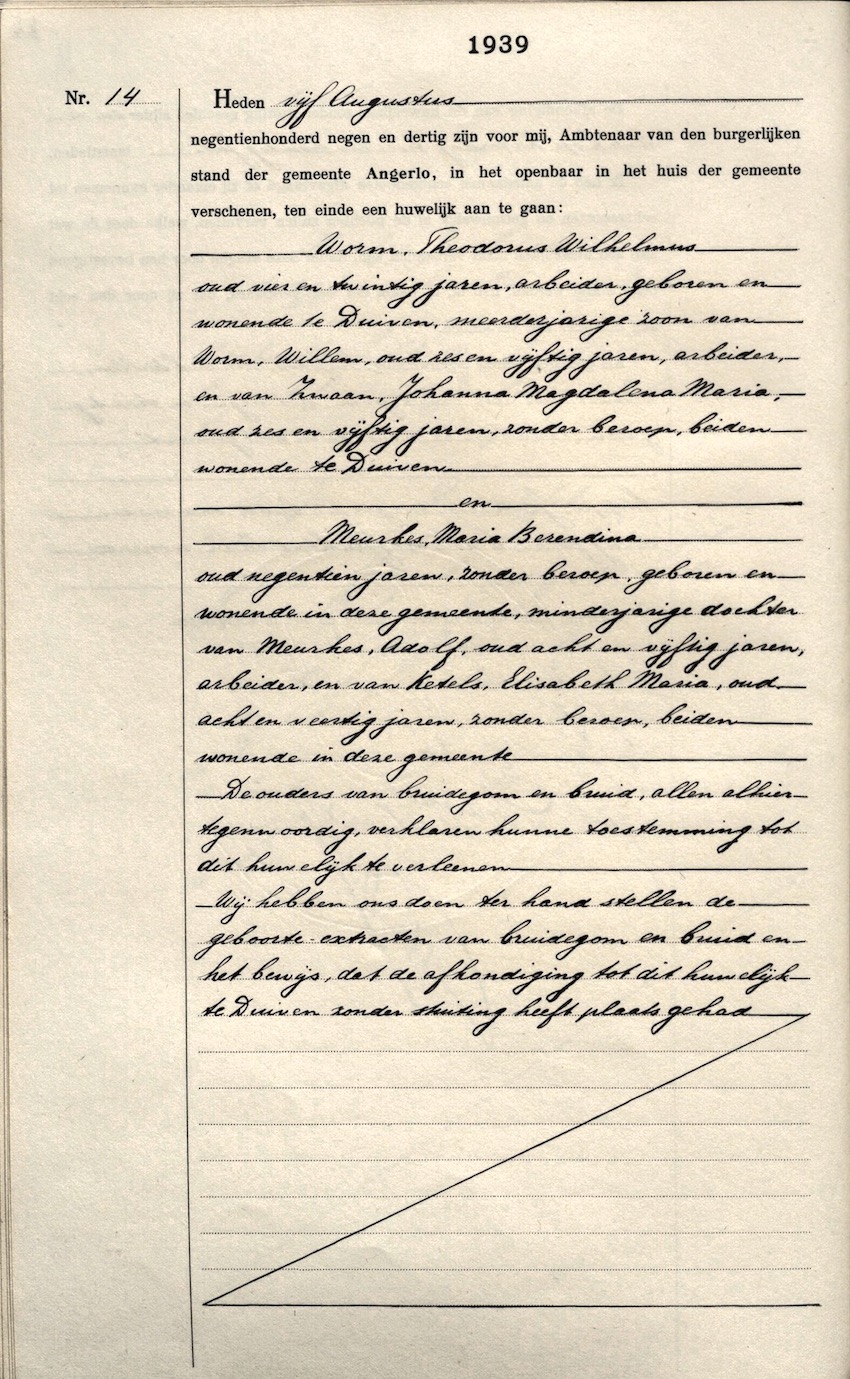 1939
Nr. 14
Heden vijf Augustus
negentienhonderd negen en dertig zijn voor mij, Ambtenaar van den burgerlijken
stand der gemeente Angerlo, in het openbaar in het huis der gemeente
verschenen, ten einde een huwelijk aan te gaan:
Worm, Theodorus Wilhelmus
oud vier en twintig jaren, arbeider, geboren en
wonende te Duiven, meerderjarige zoon van
Worm, Willem, oud zes en vijftig jaren, arbeider,
en van Zwaan, Johanna Magdalena Maria,
oud zes en vijftig jaren, zonder beroep, beiden
wonende te Duiven
en
Meurkes, Maria Berendina
oud negentien jaren, zonder beroep, geboren en
wonende in deze gemeente, minderjarige dochter
van Meurkes, Adolf, oud acht en vijftig jaren,
arbeider, en van Ketels, Elisabeth Maria, oud
acht en veertig jaren, zonder beroep, beiden
wonende in deze gemeente
De ouders van bruidegom en bruid, allen alhier
tegenwoordig, verklaren hunne toestemming tot
dit huwelijk te verleenen
Wij hebben ons doen ter hand stellen de
geboorte-extracten van bruidegom en bruid en
het bewijs, dat de afkondiging tot dit huwelijk
te Duiven zonder stuiting heeft plaats gehad